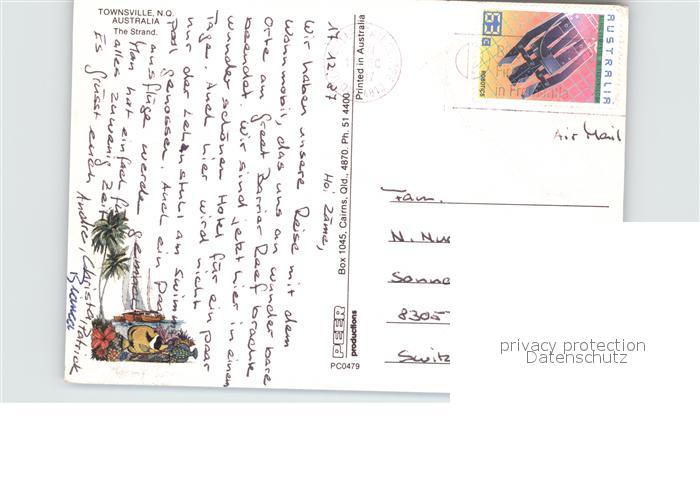 TOWNSVILLE, N.Q.
AUSTRALIA
The Strand.
17. 12. 87
Hoi Zäme,
Wir haben unsere Reise mit dem
Wohnmobil, das uns an wunderbare
Orte am Great Barrier Reef brachte
beendet. Wir sind jetzt hier in einem
wunderschönen Hotel für ein paar
Tage. Auch hier wird nicht
nur der Lehnstuhl am Swimming
Pool genossen. Auch ein paar
Ausflüge werde gemacht
Man hat einfach für
alles zuwenig Zeit
Es grüsst euch
André, Christa, Patrick
Bianca
PEER
productions
PC0479
Box 1045, Cairns, Qld., 4870. Ph. 51 4400
Printed in Australia
AUSTRALIA
ROBOTICS
in
Air Mail
Fam.
N.
8305
privacy protection
Datenschutz